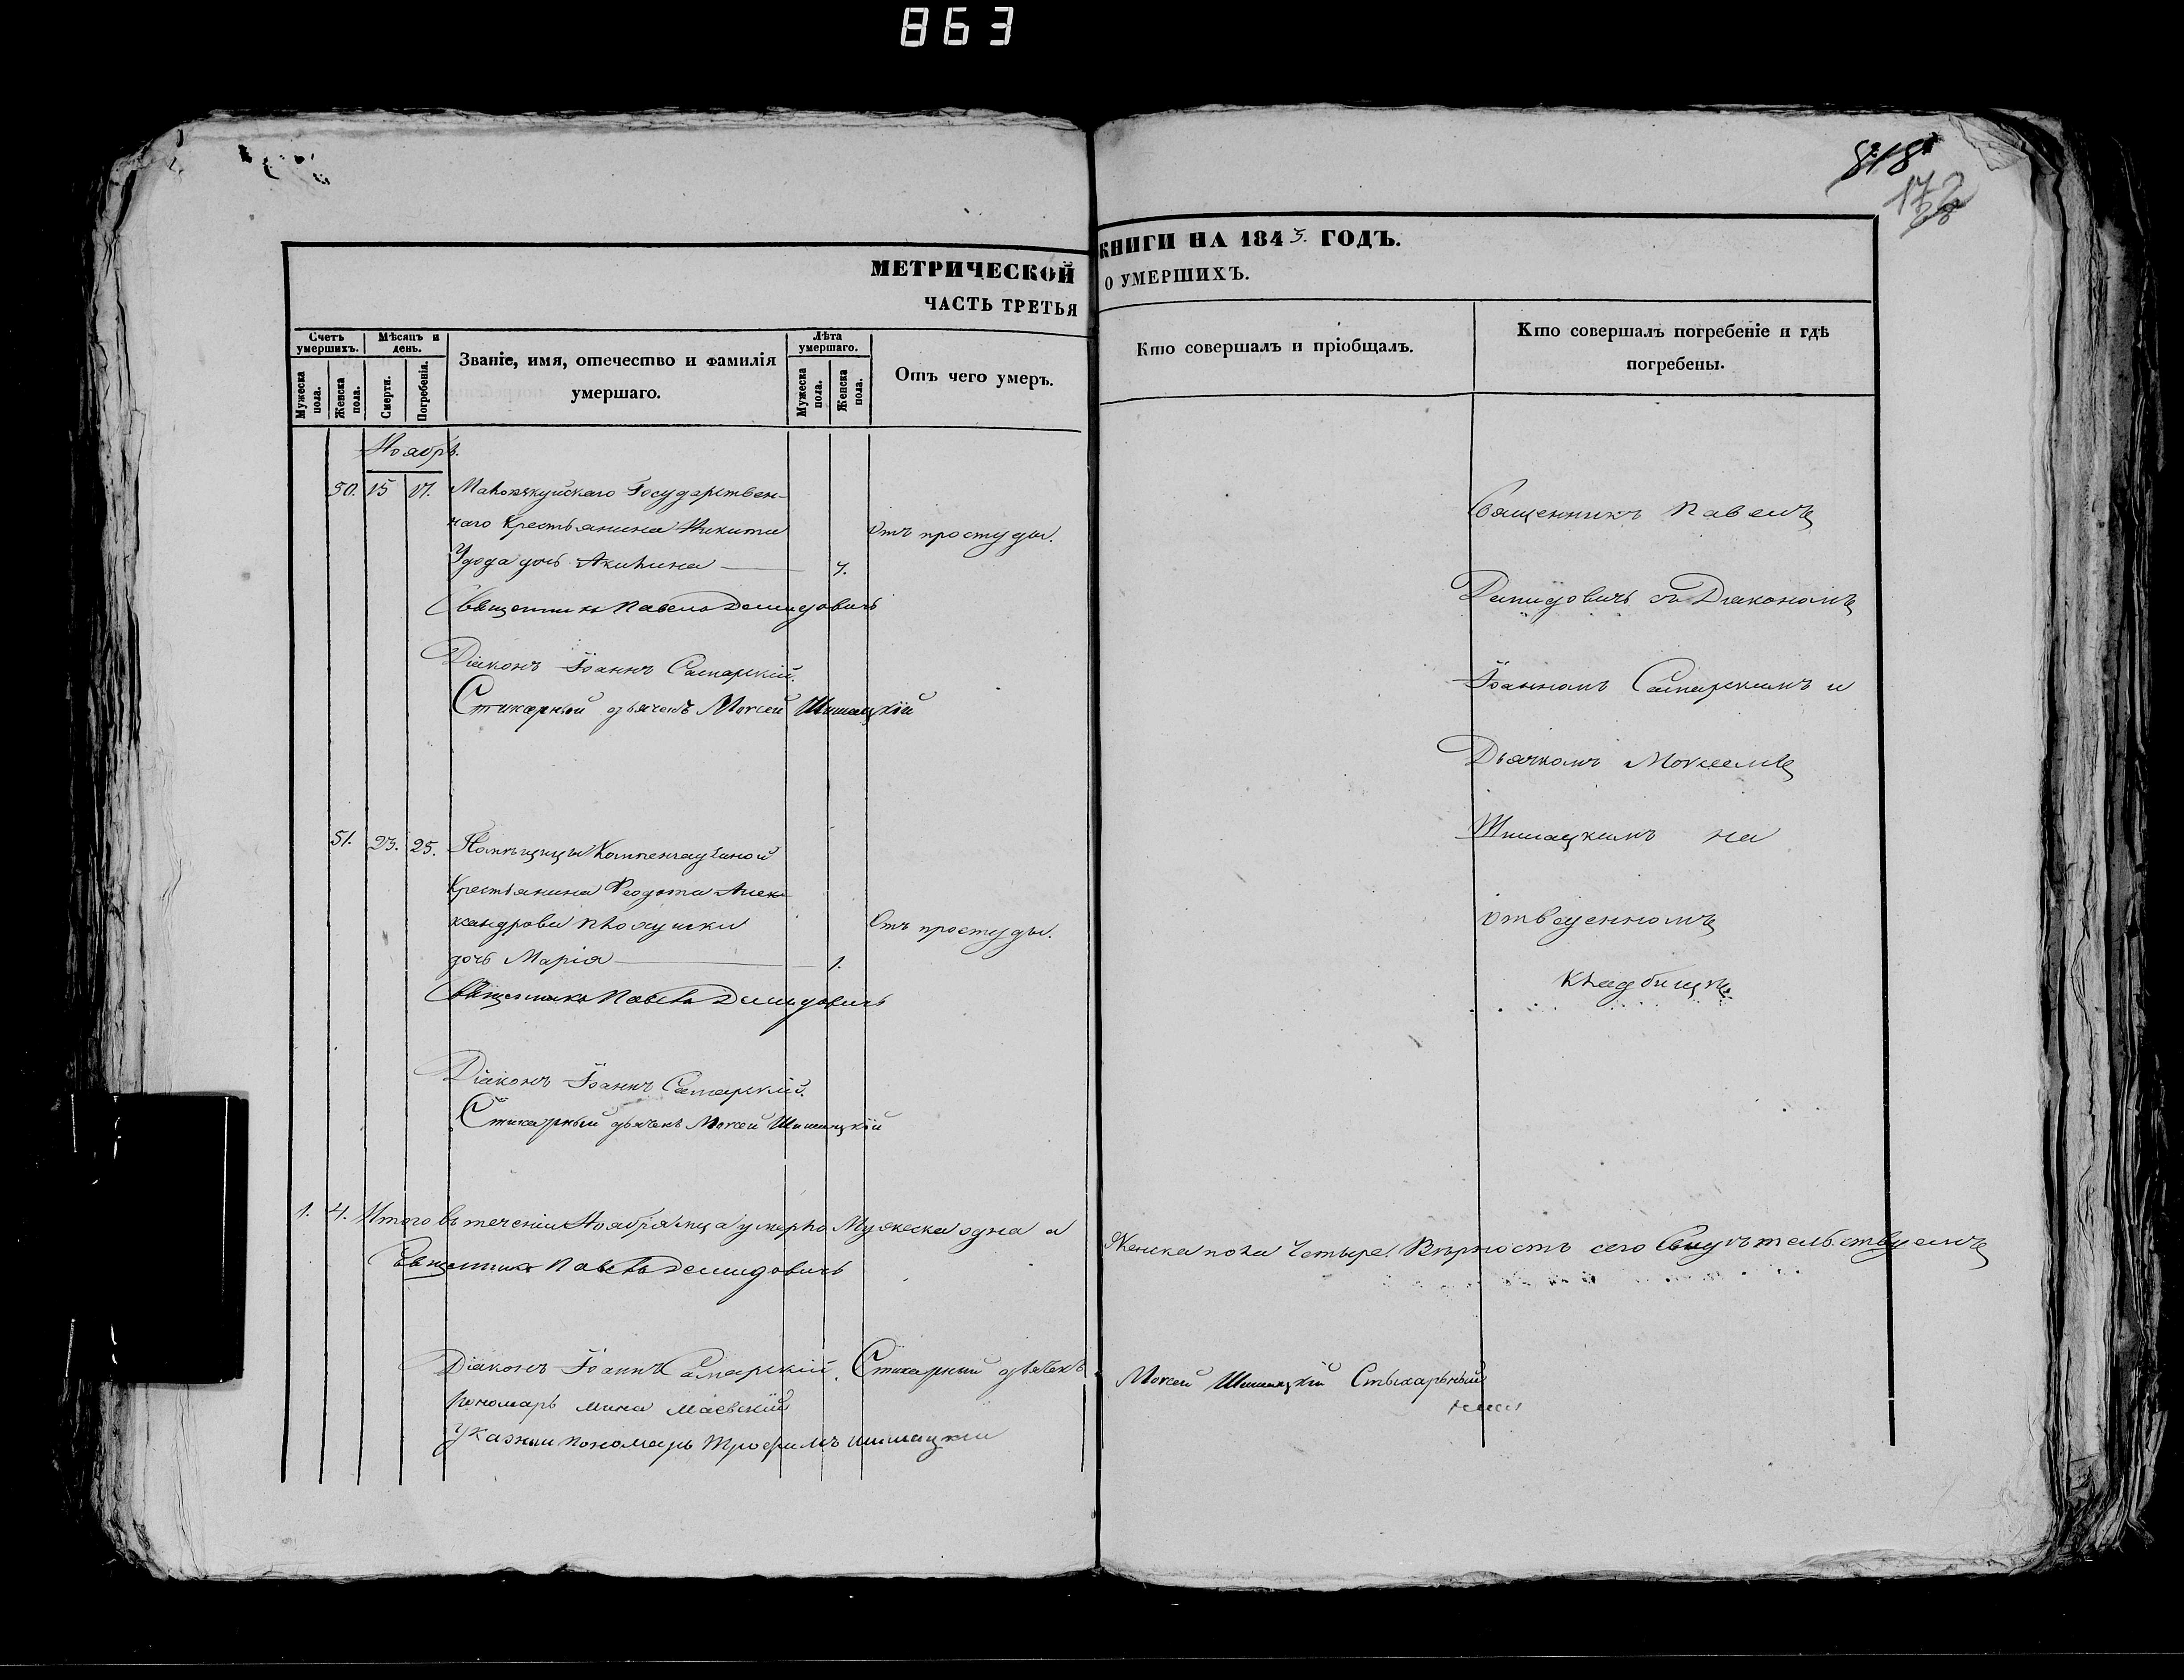 863
818
172
МЕТРИЧЕСКОЙ КНИГИ НА 1843. ГОДЪ.
ЧАСТЬ ТРЕТЬЯ О УМЕРШИХЪ.
Счетъ умершихъ.
Мужеска пола.
Женска пола.
Мѣсяцъ и день.
Смерти.
Погребенія.
Званіе, имя, отечество и фамилія умершаго.
Лѣта умершаго.
Мужеска пола.
Женска пола.
Отъ чего умеръ.
Кто совершалъ и пріобщалъ.
Кто совершалъ погребеніе и гдѣ погребены.
Ноябрь.
50. 15 17. Государствен-
наго Крестьянина Никиты
Удода дочь Акилина 7.
отъ простуды.
Священникъ Павелъ Демидовичъ
Діаконъ Іоаннъ Самарскій.
Стихарный дьячекъ Моисей Шишацкій
Священникъ Павелъ
Демидовичъ съ Діакономъ
Іоанномъ Самарскимъ и
Дьячкомъ Моисеемъ
Шишацкимъ на
отведенномъ
кладбищѣ.
51. 23. 25. Помѣщицы
Крестьянина Феодота Алек-
сандрова
дочь Марія 1.
Отъ простуды.
Священникъ Павелъ Демидовичъ
Діаконъ Іоаннъ Самарскій.
Стихарный дьячекъ Моисей Шишацкій
1. 4. Итого въ теченіи Ноября мца умерло Мужеска одна а Женска пола Четыре. Вѣрность сего Свидѣтельствуемъ
Священникъ Павелъ Демидовичъ
Діаконъ Іоаннъ Самарскій. Стихарный дьячекъ Моисей Шишацкій Стыхарьный
Пономарь Мина Маевскій
Указный пономарь Трофимъ Шишацкій